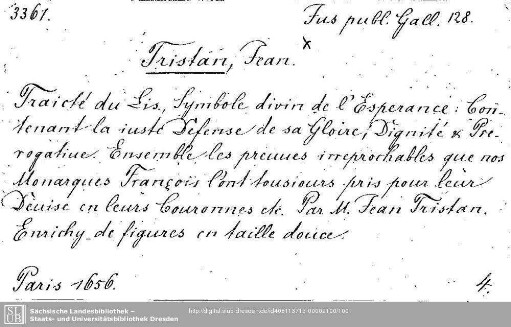 3361.
Jus publ. Gall. 128.
Tristan, Jean. x
Traicté du Lis, Symbole divin de l'Esperance: Con-
tenant la iuste Défense de sa Gloire, Dignité & Pre-
rogative. Ensemble les preuues irreprochables que nos
Monarques François l'ont tousiours pris pour leur
Deuise en leurs Couronnes etc. Par M. Jean Tristan.
Enrichy de figures en taille douce.
Paris 1656.
4.
Sächsische Landesbibliothek –
Staats- und Universitätsbibliothek Dresden